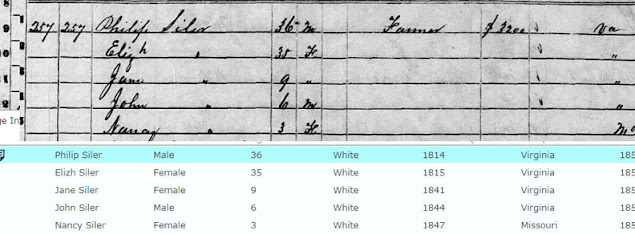 8
9 257 257 Philip Siler 36 M Farmer $ 3200 Va
10 Elizh " 35 F "
11 Jane " 9 " "
12 John " 6 M "
Nancy " 3 F Mo
ge In
Philip Siler Male 36 White 1814 Virginia 185
Elizh Siler Female 35 White 1815 Virginia 185
Jane Siler Female 9 White 1841 Virginia 185
John Siler Male 6 White 1844 Virginia 185
Nancy Siler Female 3 White 1847 Missouri 185